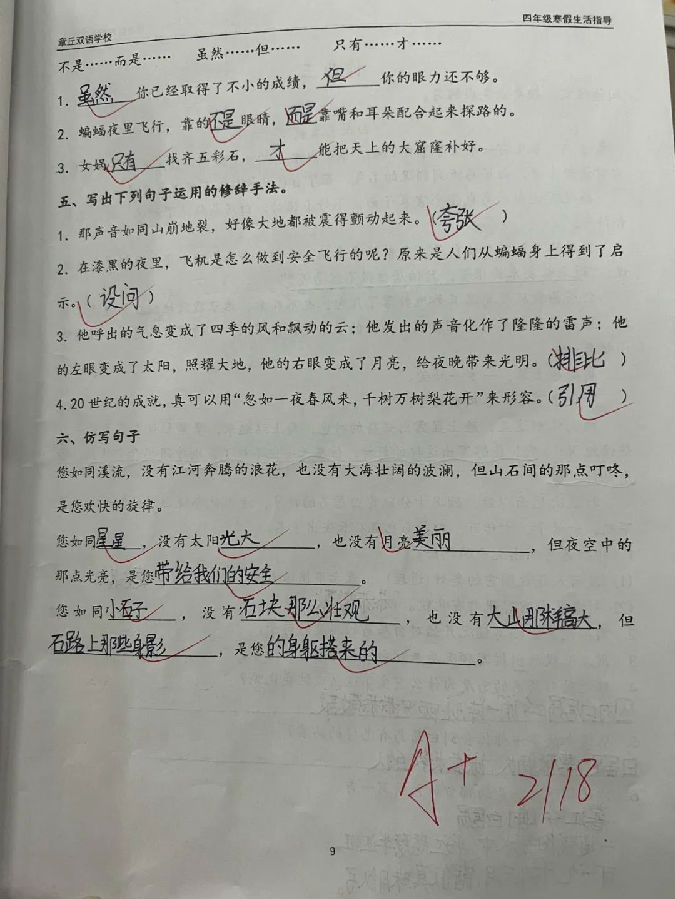 章丘双语学校
四年级寒假生活指导
不是……而是…… 虽然……但…… 只有……才……
1. 虽然 你已经取得了不小的成绩，但 你的眼力还不够。
2. 蝙蝠夜里飞行，靠的不是眼睛，而是靠嘴和耳朵配合起来探路的。
3. 女娲只有 找齐五彩石，才 能把天上的大窟窿补好。
五、写出下列句子运用的修辞手法。
1. 那声音如同山崩地裂，好像大地都被震得颤动起来。（夸张 ）
2. 在漆黑的夜里，飞机是怎么做到安全飞行的呢？原来是人们从蝙蝠身上得到了启
示。（设问 ）
3. 他呼出的气息变成了四季的风和飘动的云；他发出的声音化作了隆隆的雷声；他
的左眼变成了太阳，照耀大地，他的右眼变成了月亮，给夜晚带来光明。（排比 ）
4. 20 世纪的成就，真可以用“忽如一夜春风来，千树万树梨花开”来形容。（引用 ）
六、仿写句子
您如同溪流，没有江河奔腾的浪花，也没有大海壮阔的波澜，但山石间的那点叮咚，
是您欢快的旋律。
您如同星星，没有太阳光大，也没有月亮美丽，但夜空中的
那点光亮，是您带给我们的安全。
您如同小石子，没有石块那么壮观，也没有大山那样高大，但
石路上那些身影，是您的身躯搭来的。
A+ 2/18
9